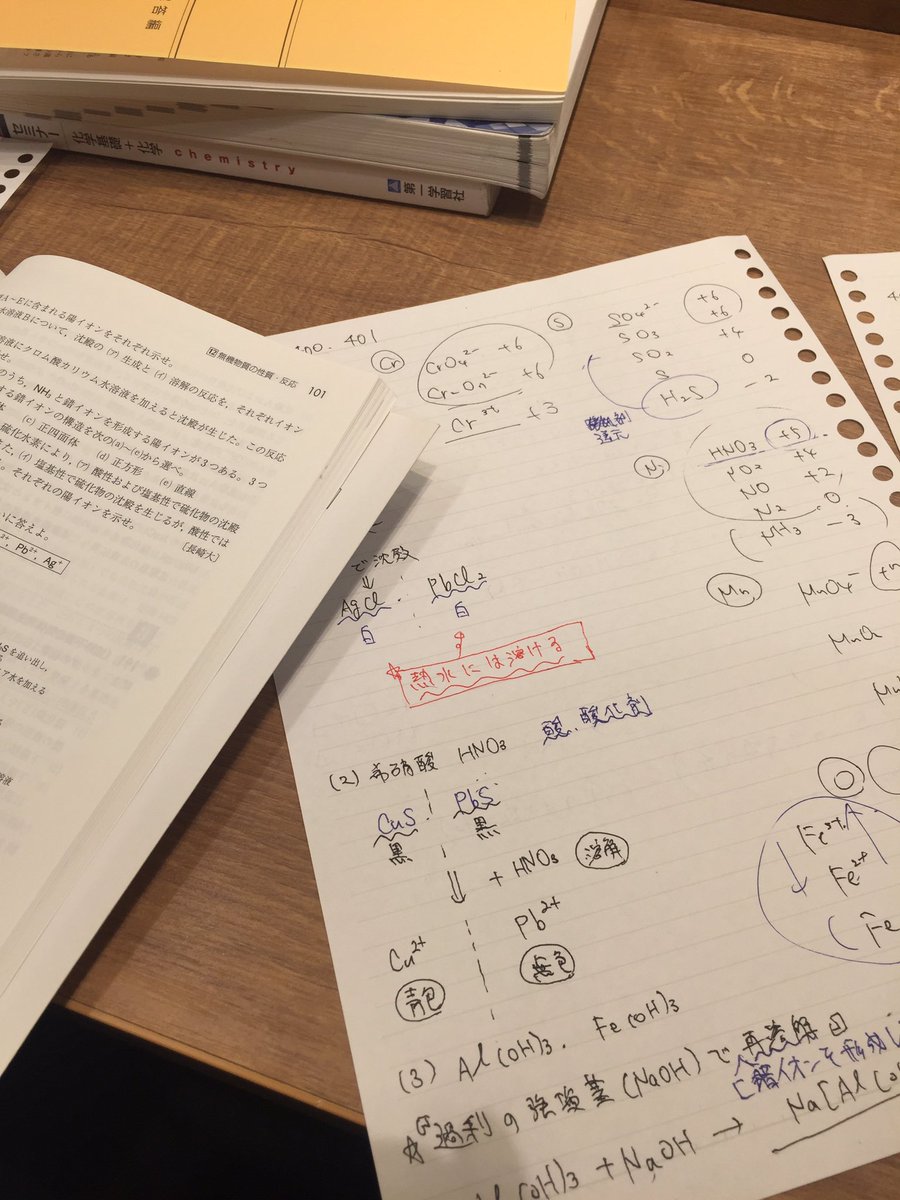 答編
セミナー 化学基礎+化学 chemistry
第一学習社
12 無機物質の性質・反応 101
A~Eに含まれる陽イオンをそれぞれ示せ。
水溶液Bについて、沈殿の(ア)生成と(イ)溶解の反応を、それぞれイオン
溶液にクロム酸カリウム水溶液を加えると沈殿が生じた。この反応
のうち、NH₃と錯イオンを形成する陽イオンが3つある。3つ
する錯イオンの構造を次の(a)~(e)から選べ。
体 (c) 正四面体 (d) 正方形 (e) 直線
硫化水素により、(ア)酸性および塩基性で硫化物の沈殿
また、(イ)塩基性で硫化物の沈殿を生じるが、酸性では
それぞれの陽イオンを示せ。
〔長崎大〕
いに答えよ。
Pb²⁺, Ag⁺
Sを追い出し、
ア水を加える
溶液
no. 401
Cr
CrO₄²⁻ +6
+6
Cr³⁺ +3
S
SO₄²⁻ +6
+6
SO₃
SO₂ +4
S 0
H₂S -2
還元
HNO₃ +5
NO₂ +4
NO +2
N₂ 0
(NH₃ -3)
Mn
MnO₄⁻
で沈殿
AgCl PbCl₂
白 白
☆熱水には溶ける
(2) 希硝酸 HNO₃ 酸、酸化剤
CuS PbS
黒 黒
+ HNO₃ 溶解
Cu²⁺ Pb²⁺
青色 無色
Fe³⁺
Fe²⁺
(Fe
(3) Al(OH)₃. Fe(OH)₃
☆過剰の強塩基(NaOH)で再溶解
錯イオンを形成し
Al(OH)₃ + NaOH → Na[Al(O